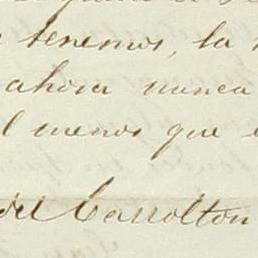 tenemos, la
ahora nunca
menos que
del Carrolton